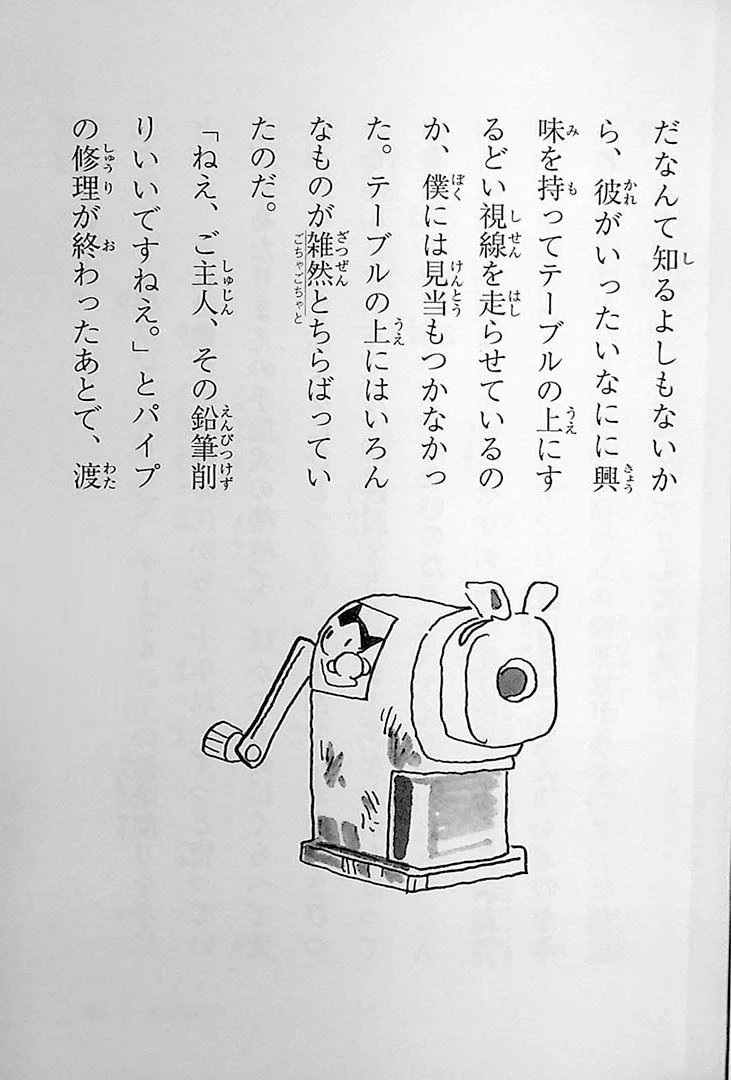 だなんて知るよしもないか
ら、彼がいったいなにに興
味を持ってテーブルの上にす
るどい視線を走らせているの
か、僕には見当もつかなかっ
た。テーブルの上にはいろん
なものが雑然とちらばってい
たのだ。
「ねえ、ご主人、その鉛筆削
りいいですねえ。」とパイプ
の修理が終わったあとで、渡